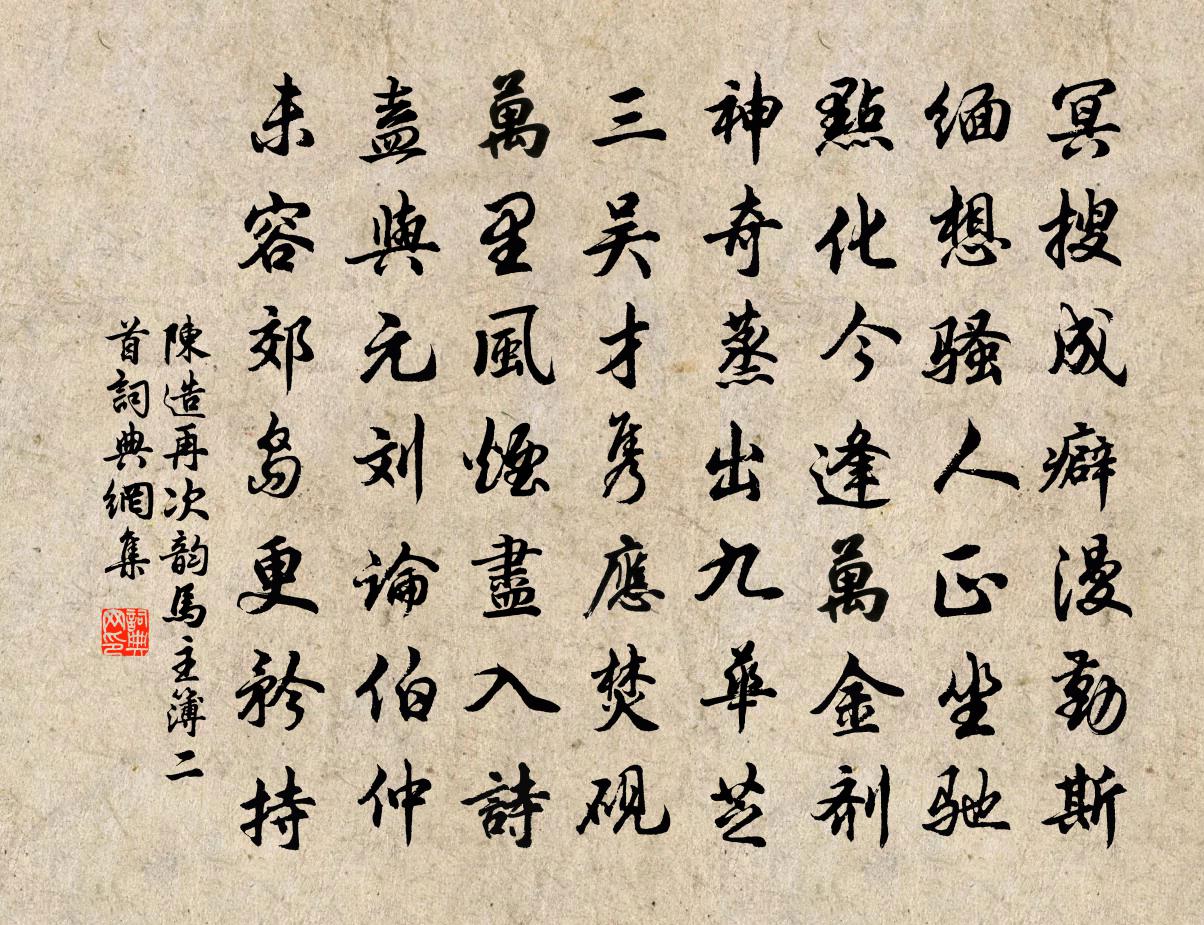 冥搜成癖漫勤斯
缅想骚人正坐驰
點化今逢萬金剂
神奇蒸出九華芝
三吴才隽應焚硯
萬里風煙盡入詩
盍與元刘論伯仲
未容郊島更矜持
陳造再次韵馬主簿二
首詞典網集
詞典
网印